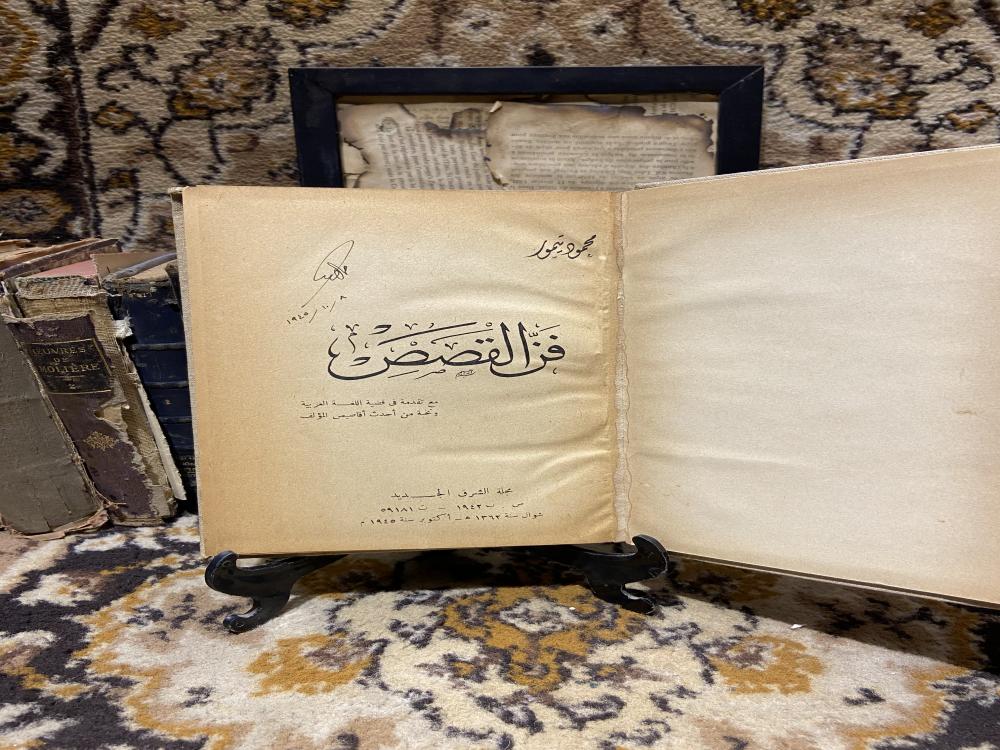 محمود تيمور
١٩٤٥/١٠/٨
فن القصص
مع تقدمة في قضية اللغة العربية
ونخبة من أحدث أقاصيص المؤلف
مجلة الشرق الجديد
س . ت ١٩٤٢ - ت ٥٩١٨١
شوال سنة ١٣٦٢ هـ - أكتوبر سنة ١٩٤٥ م
ŒUVRES
DE
MOLIÈRE
2